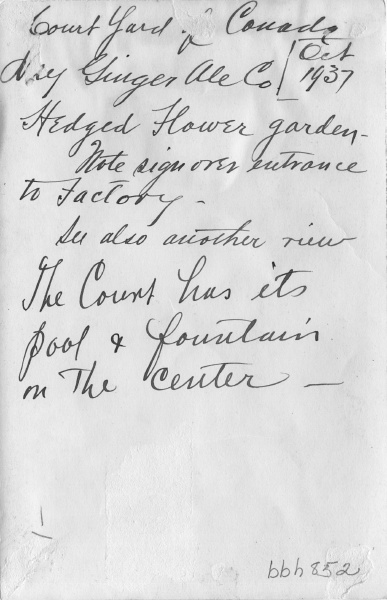 Court Yard of Canada
Dry Ginger Ale Co | Oct
1937
Hedged Flower garden-
Note sign over entrance
to Factory -
See also another view
The Court has its
pool & fountain
in The center -
bbh852